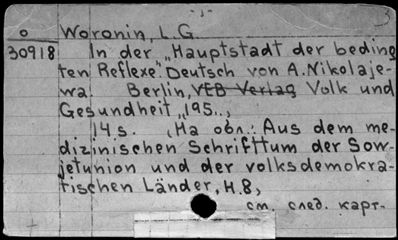 -,-
3
o Woronin, L.G.
30918 In der „Hauptstadt der beding
ten Reflexe". Deutsch von A. Nikolaje-
wa. Berlin, VEB Verlag Volk und
Gesundheit, 195..,
14 s. (На обл.: Aus dem me-
dizinischen Schrifttum der Sow-
jetunion und der volksdemokra-
tischen Länder, H.8,
см. след. карт.